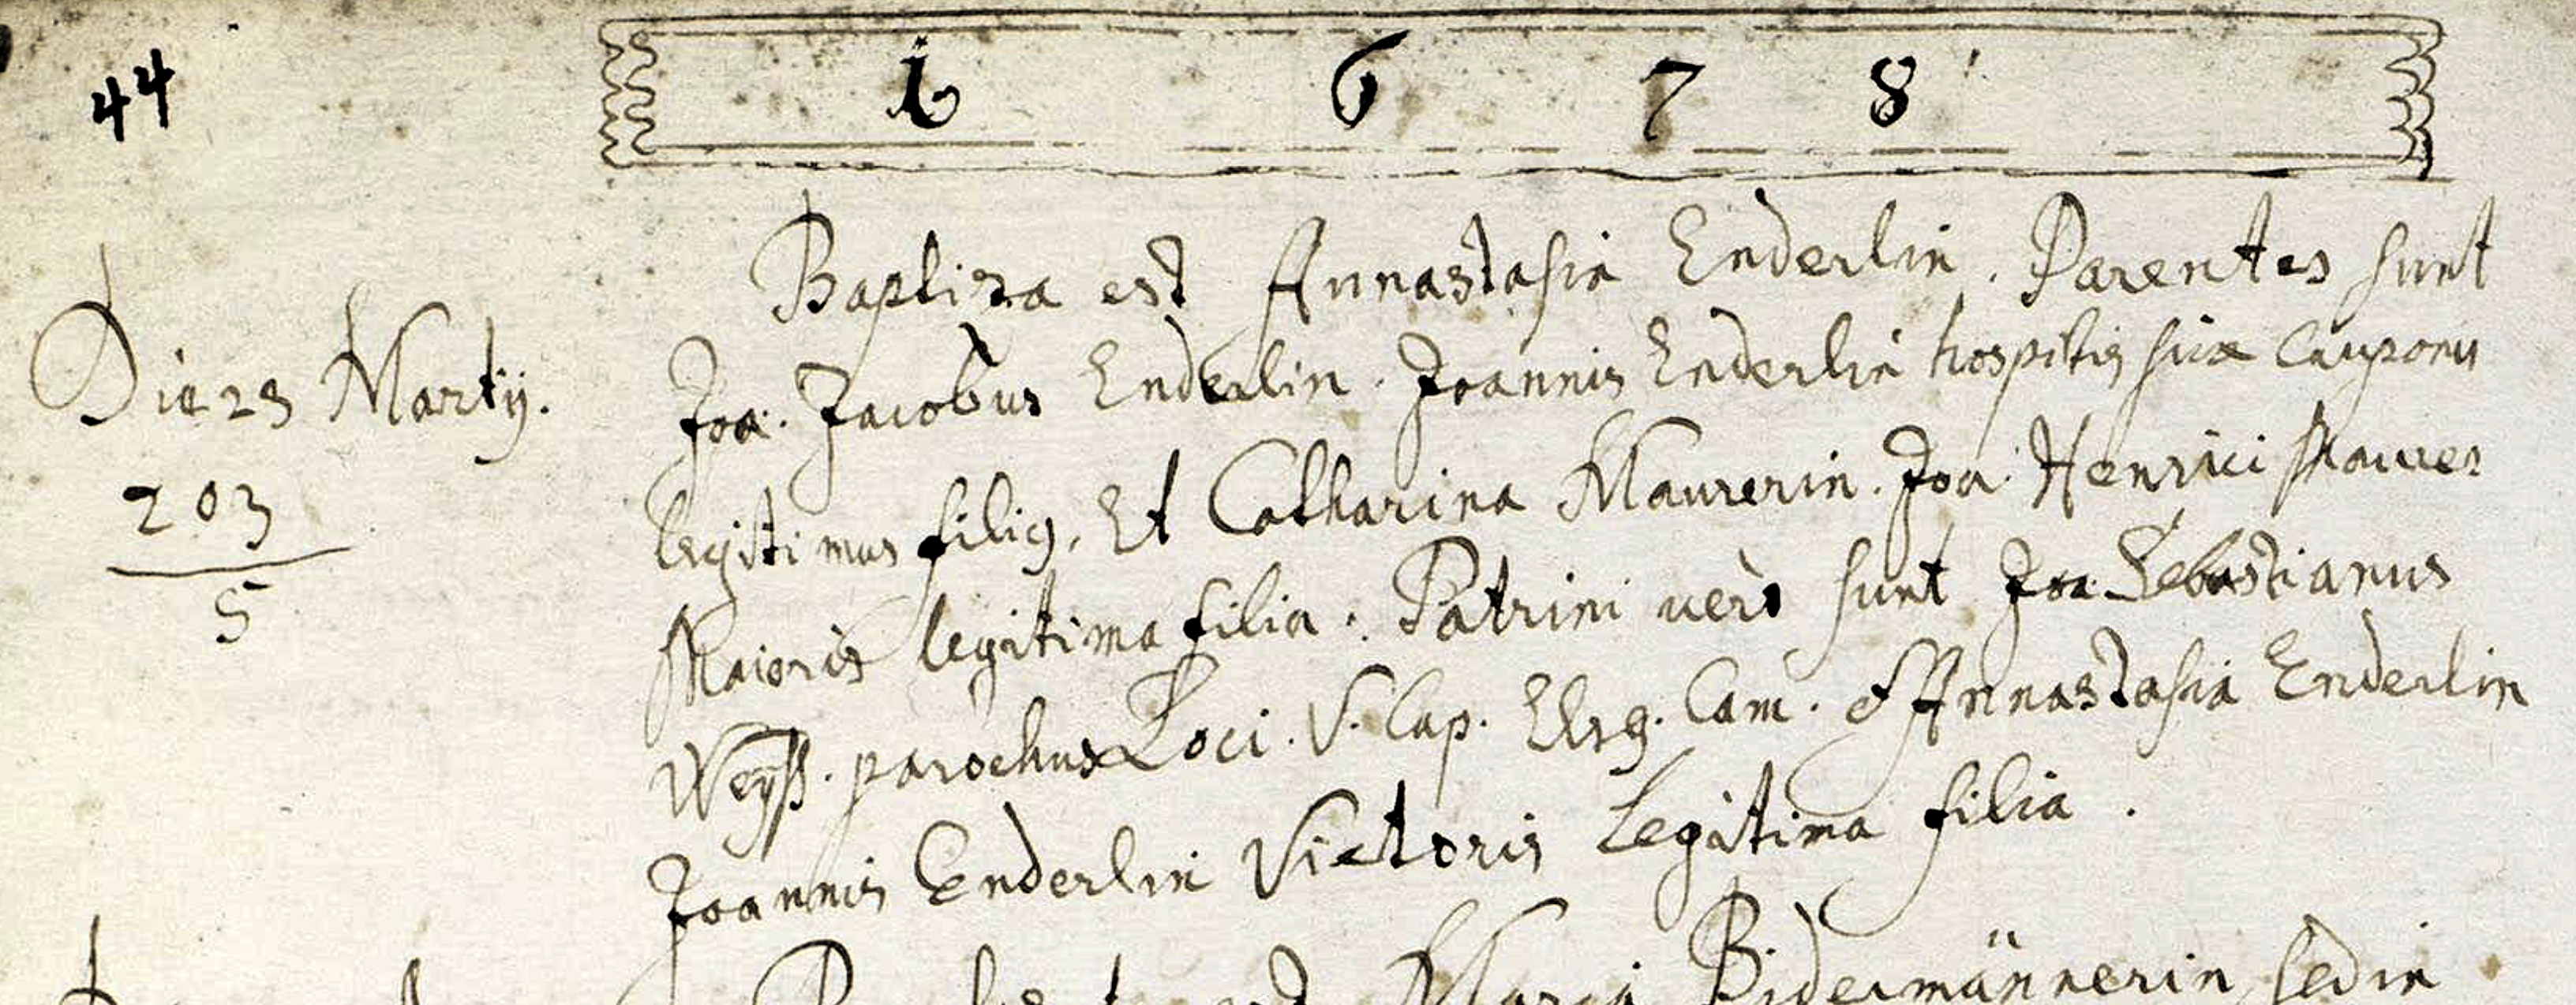 44
1 6 7 8
Baptiza est Annastasia Enderlin. Parentes sunt
Die 23 Martÿ.
Joa: Jacobus Enderlin. Joannis Enderlin hospitis siue Cauponis
203
5
legitimus filig, Et Catharina Maurerin. Joa: Henrici Maurer
Maioris legitima filia. Patrini uerò sunt Joa: Sebastianus
Weyß. parochus Loci. V. Cap. Elsg. Cam. & Annastasia Enderlin
Joannis Enderlin Victoris legitima filia.
Maria Bidermännerin, sed in